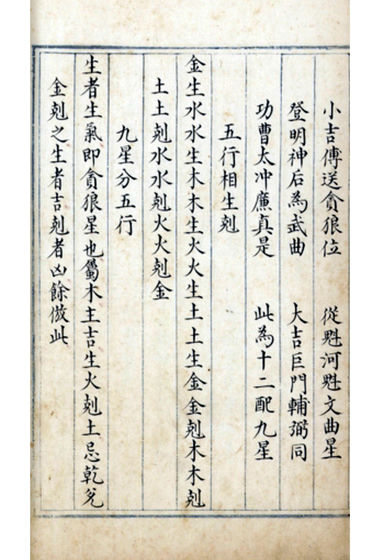 小吉傳送貪狼位 從魁河魁文曲星
登明神后為武曲 大吉巨門輔弼同
功曹太冲廉真是 此為十二配九星
五行相生剋
金生水水生木木生火火生土土生金金剋木木剋
土土剋水水剋火火剋金
九星分五行
生者生氣即貪狼星也屬木主吉生火剋土忌乾兌
金剋之生者吉剋者凶餘倣此